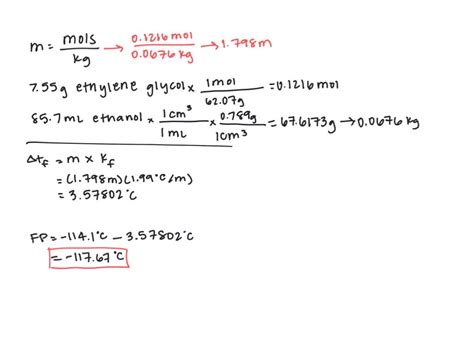 m = mols/kg → 0.1216 mol/0.0676 kg → 1.798m
7.55g ethylene glycol x 1 mol/62.07g = 0.1216 mol
85.7 mL ethanol x 1 cm³/1 mL x 0.789g/1cm³ = 67.6173g → 0.0676 kg
Δtf = m x kf
= (1.798m)(1.99°C/m)
= 3.57802°C
FP = -114.1°C - 3.57802°C
= -117.67°C